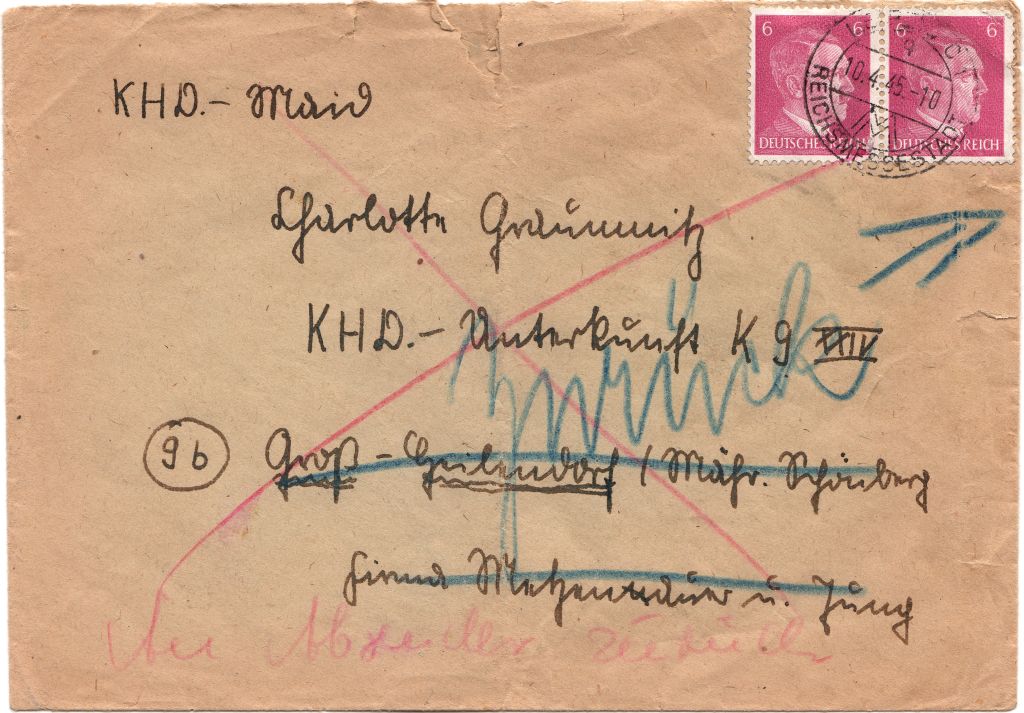 KHD.- Maid
6 6 6 6
DEUTSCHES REICH DEUTSCHES REICH
10.4.45.-10
REICHSMESSESTADT
Charlotte Graummitz
KHD.- Unterkunft K 9 XXIV
zurück
9b Groß - Heilendorf / Mähr. Schönberg
Firma u. Jung
An Absender zurück